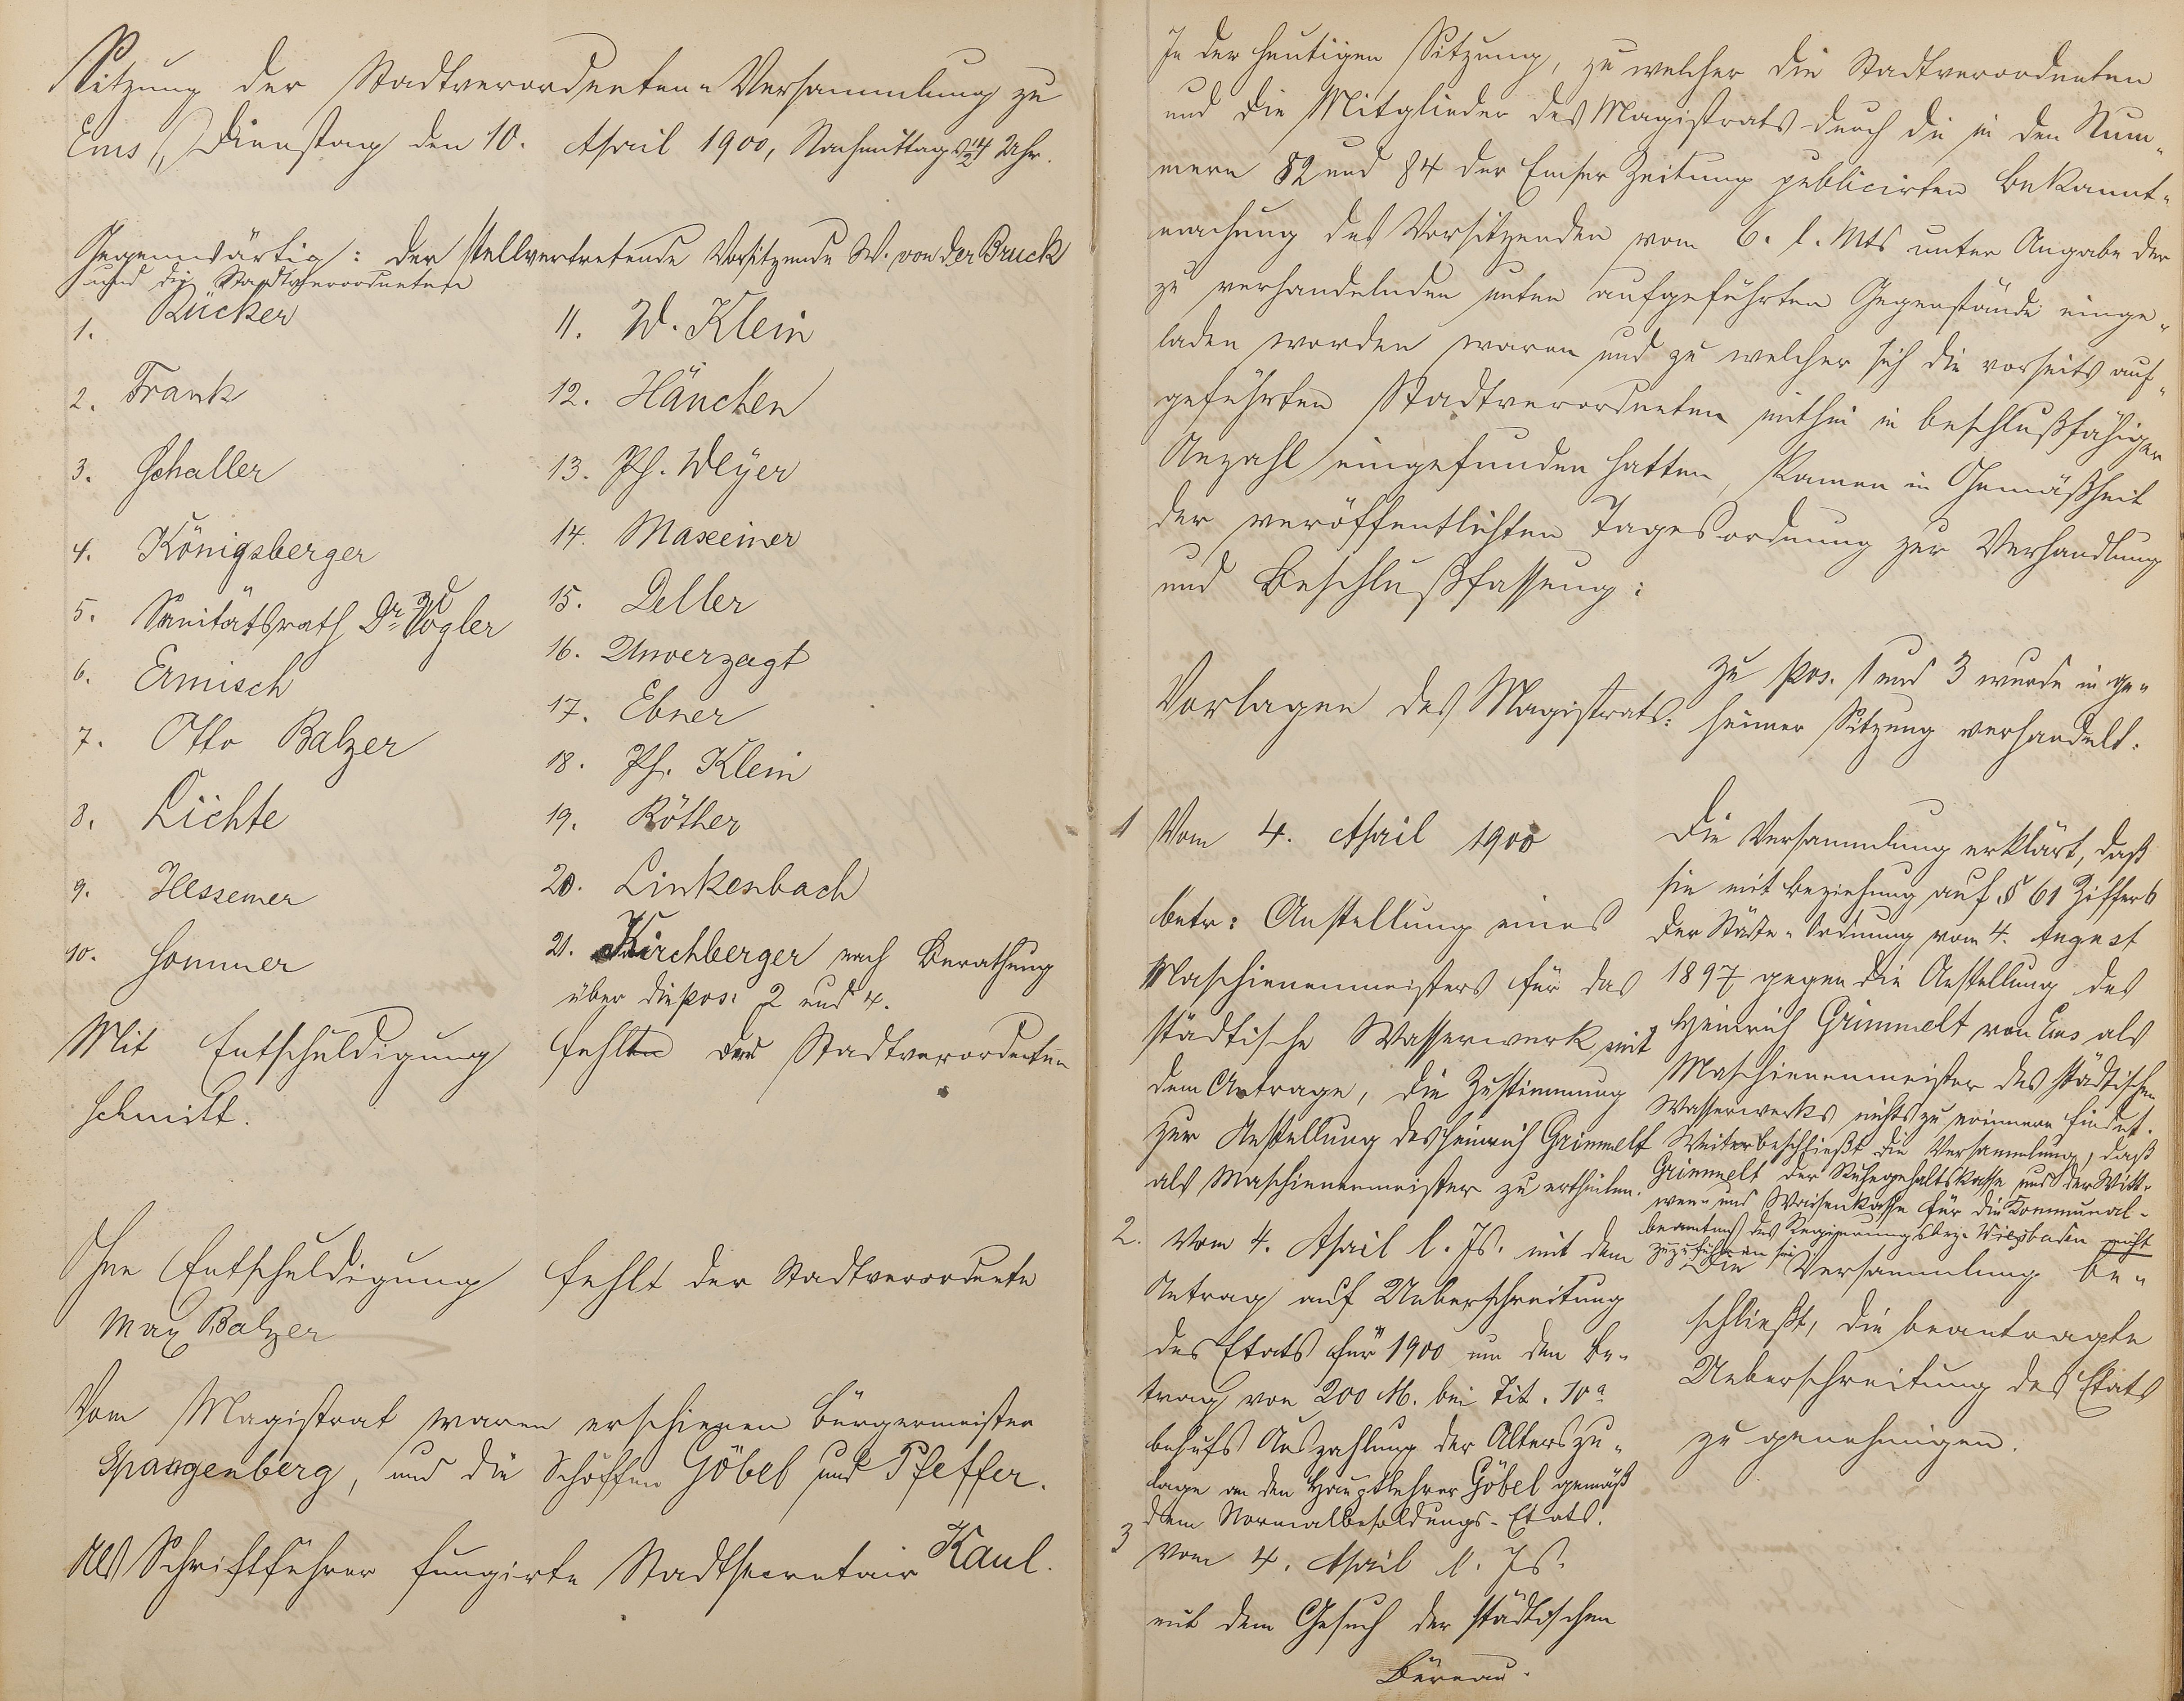 Sitzung der Stadtverordneten-Versammlung zu
Ems, Dienstag den 10. April 1900, Nachmittags ½4 Uhr.
Gegenwärtig: der stellvertretende Vorsitzende W. von der Bruck
und die Stadtverordneten
1. Rücker
2. Frank
3. Schaller
4. Königsberger
5. Sanitätsrath Dr. Vogler
6. Ermisch
7. Otto Balzer
8. Lichte
9. Hessemer
10. Sommer
11. W. Klein
12. Hänchen
13. Ph. Weyer
14. Maxeiner
15. Deller
16. Unverzagt
17. Ebner
18. Ph. Klein
19. Röther
20. Linkenbach
21. Kirchberger nach Berathung
über die pos. 2 und 4.
Mit Entschuldigung fehlten der Stadtverordneten
Schmitt.
Ohne Entschuldigung fehlt der Stadtverordnete
Max Balzer
Vom Magistrat waren erschienen Bürgermeister
Spangenberg, und die Schöffen Göbel und Pfeffer.
Als Schriftführer fungirte Stadtsecretair Kaul.
In der heutigen Sitzung, zu welcher die Stadtverordneten
und die Mitglieder des Magistrats durch die in den Num-
mern 82 und 84 der Emser Zeitung publicirten Bekannt-
machung des Vorsitzenden vom 6. l. Mts unter Angabe der
zu verhandelnden unten aufgeführten Gegenstände einge-
laden worden waren und zu welcher sich die vorseits auf-
geführten Stadtverordneten mithin in beschlußfähiger
Anzahl eingefunden hatten, kamen in Gemäßheit
der veröffentlichten Tagesordnung zur Verhandlung
und Beschlußfassung:
Vorlagen des Magistrats:
zu pos. 1 und 3 wurde in ge-
heimer Sitzung verhandelt.
1 Vom 4. April 1900
betr: Anstellung eines
Maschienenmeisters für das
städtische Wasserwerk mit
dem Antrage, die Zustimmung
zur Anstellung des Heinrich Grimmelt
als Maschienenmeister zu ertheilen.
Die Versammlung erklärt, daß
sie mit Beziehung auf § 61 Ziffer 6
der Städte-Ordnung vom 4. August
1897 gegen die Anstellung des
Heinrich Grimmelt von Ems als
Maschienenmeister des städtischen
Wasserwerks nichts zu erinnern findet.
Weiter beschließt die Versammlung, daß
Grimmelt der Ruhegehaltskasse und der Witt-
wen- und Waisenkasse für die Kommunal-
beamten des Regierungsbez. Wiesbaden nicht
zuzuführen sei.
2. Vom 4. April l. Js. mit dem
Antrag auf Ueberschreitung
des Etats für 1900 um den Be-
trag von 200 M. bei Tit. 10a
behufs Auszahlung der Alterszu-
lage an den Hauptlehrer Göbel gemäß
dem Normalbesoldungs-Etats.
Die Versammlung be-
schließt, die beantragte
Ueberschreitung des Etats
zu genehmigen.
3 Vom 4. April l. Js.
mit dem Gesuch der städtischen
Büreau-